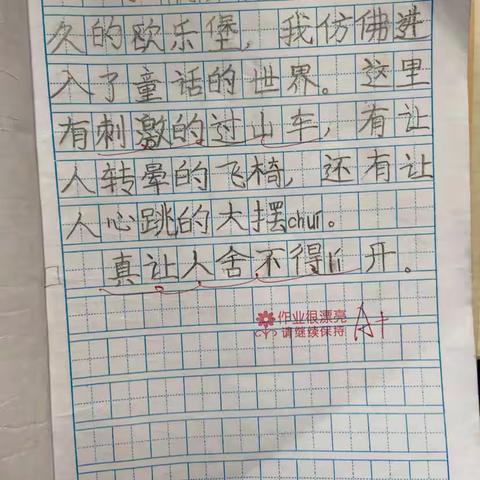 久的欧乐堡，我仿佛进
入了童话的世界。这里
有刺激的过山车，有让
人转晕的飞椅，还有让
人心跳的大摆chuí。
真让人舍不得lí开。
作业很漂亮
请继续保持 A+